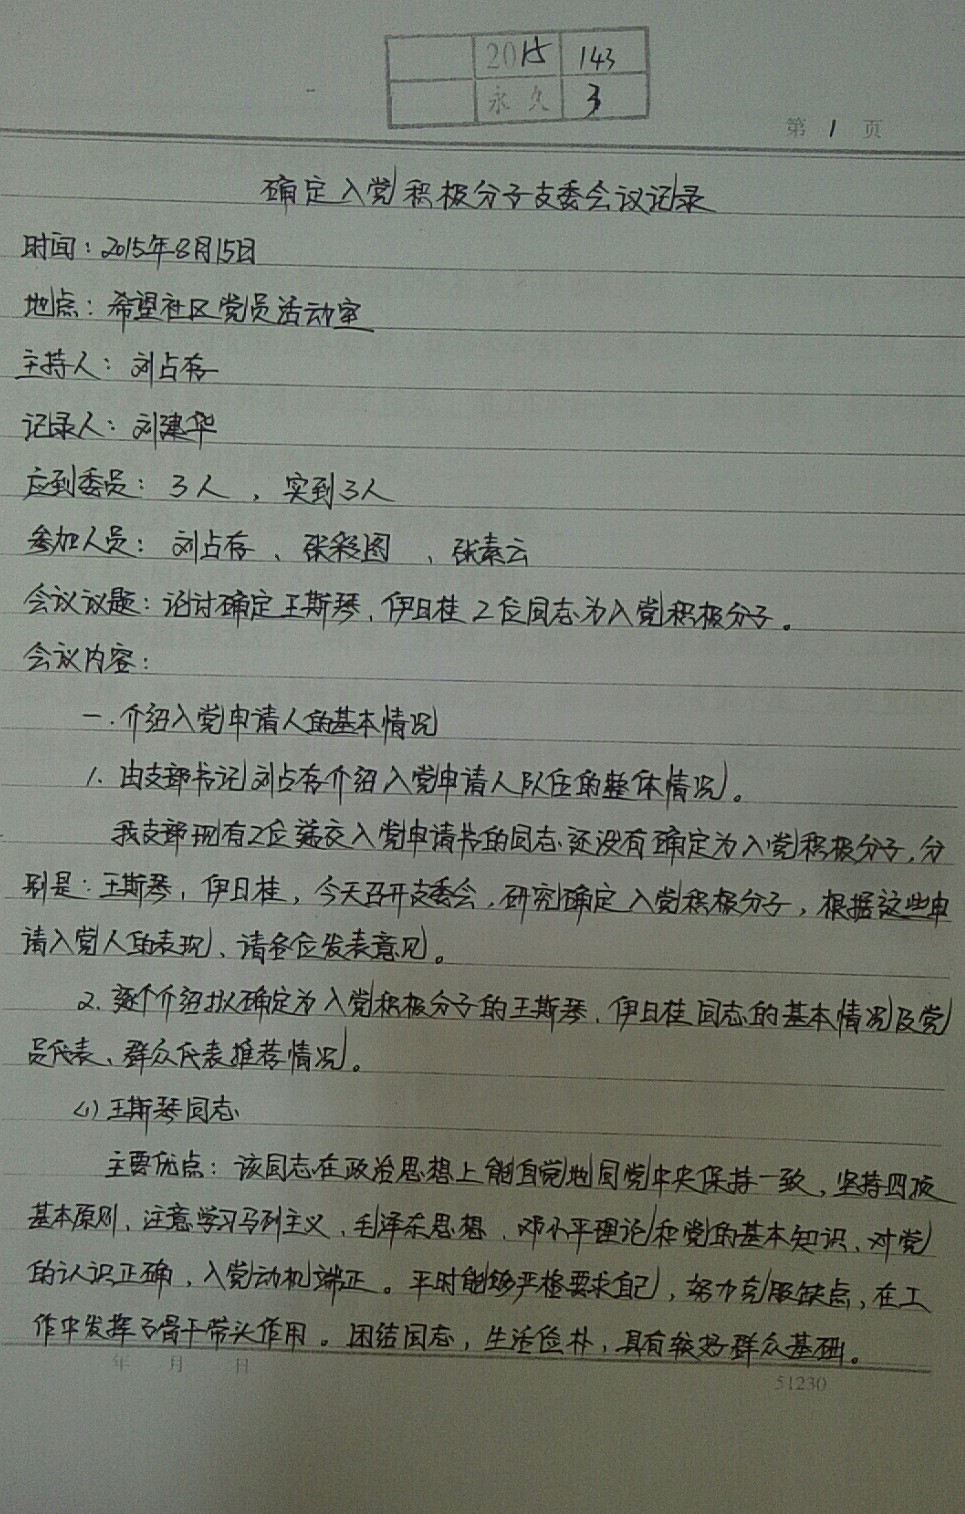 2015 143
永久 3
第 1 页
确定入党积极分子支委会议记录
时间：2015年8月15日
地点：希望社区党员活动室
主持人：刘占存
记录人：刘建华
应到委员：3人，实到3人
参加人员：刘占存、张彩图、张素云
会议议题：讨论确定王斯琴，伊日桂2位同志为入党积极分子。
会议内容：
一.介绍入党申请人的基本情况
1.由支部书记刘占存介绍入党申请人队伍的整体情况。
我支部现有2位递交入党申请书的同志还没有确定为入党积极分子，分
别是：王斯琴，伊日桂，今天召开支委会，研究确定入党积极分子，根据这些申
请入党人的表现、请各位发表意见。
2.逐个介绍拟确定为入党积极分子的王斯琴、伊日桂同志的基本情况及党
员代表、群众代表推荐情况。
(1)王斯琴同志
主要优点：该同志在政治思想上能自觉地同党中央保持一致，坚持四项
基本原则，注意学习马列主义、毛泽东思想、邓小平理论和党的基本知识、对党
的认识正确，入党动机端正。平时能够严格要求自己，努力克服缺点，在工
作中发挥了骨干带头作用。团结同志，生活俭朴，具有较好群众基础。
年 月 日
51230